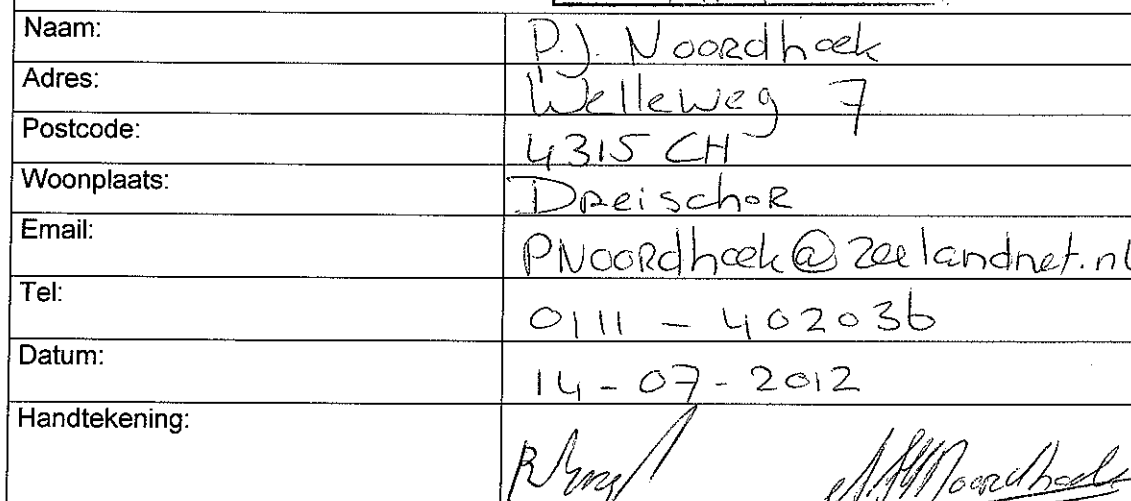 Naam: P.J. Noordhoek
Adres: Welleweg 7
Postcode: 4315 CH
Woonplaats: Dreischor
Email: PNoordhoek@zeelandnet.nl
Tel: 0111 - 402036
Datum: 14-07-2012
Handtekening: Noordhoek